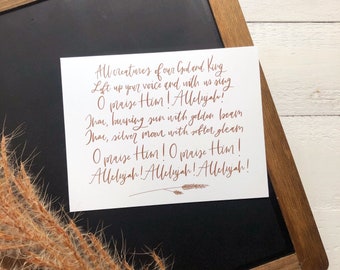 All creatures of our God and King
Lift up your voice and with us sing
O praise Him! Allelujah!
Thou, burning sun with golden beam
Thou, silver moon with softer gleam
O praise Him! O praise Him!
Allelujah! Allelujah! Allelujah!